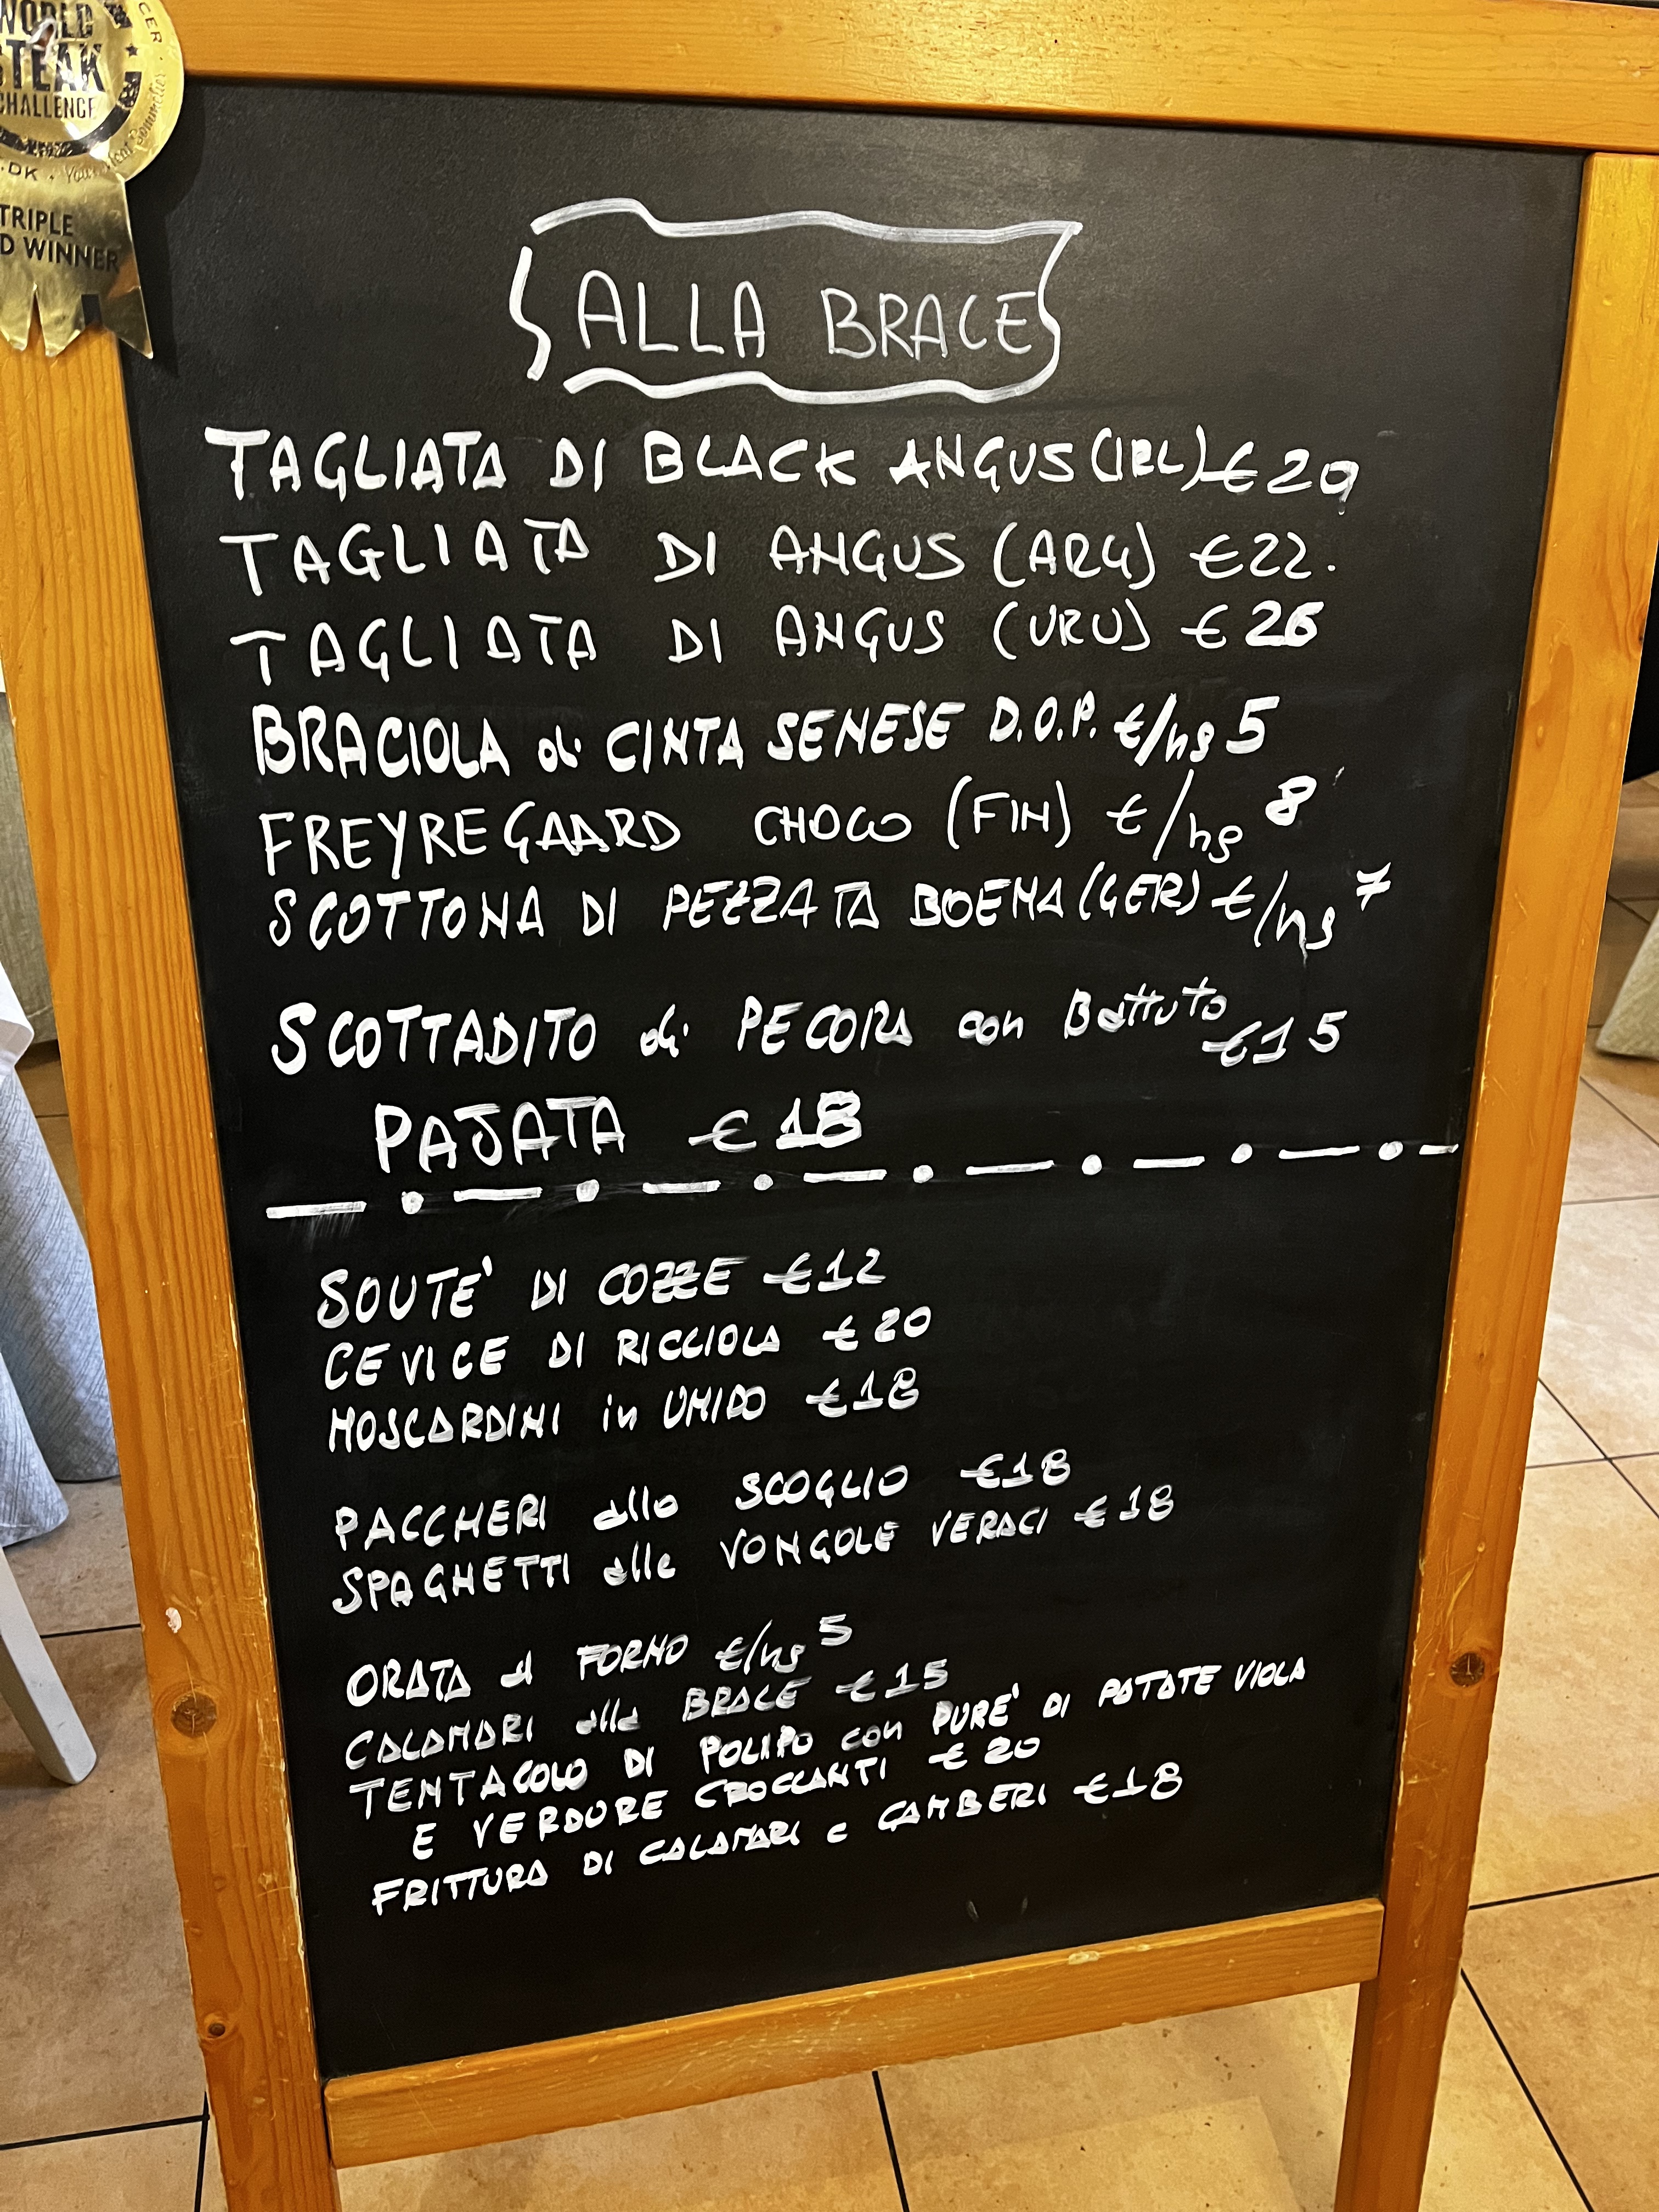 CER
WORLD
STEAK
CHALLENGE
.DK
TRIPLE
D WINNER
ALLA BRACE
TAGLIATA DI BLACK ANGUS (IRL) €20
TAGLIATA DI ANGUS (ARG) €22.
TAGLIATA DI ANGUS (URU) €26
BRACIOLA di CINTA SENESE D.O.P. €/hg 5
FREYREGAARD CHOCO (FIN) €/hg 8
SCOTTONA DI PEZZATA BOEMA (GER) €/hg 7
SCOTTADITO di PECORA con Battuto €15
PAJATA €18
SOUTE' DI COZZE €12
CEVICE DI RICCIOLA €20
MOSCARDINI in UMIDO €18
PACCHERI allo SCOGLIO €18
SPAGHETTI alle VONGOLE VERACI €18
ORATA al FORNO €/hg 5
CALAMARI alla BRACE €15
TENTACOLO DI POLIPO con PURE' DI PATATE VIOLA
E VERDURE CROCCANTI €20
FRITTURA DI CALAMARI e GAMBERI €18